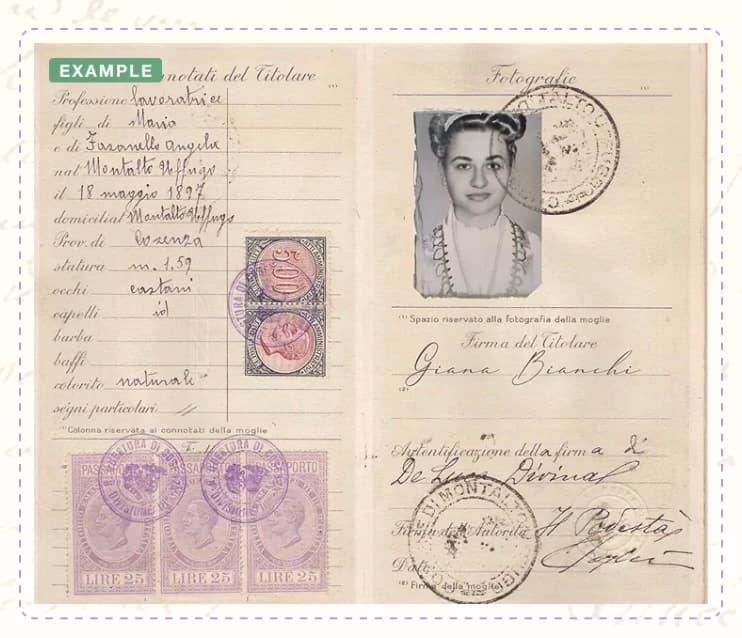 EXAMPLE
nnotati del Titolare
(1)
Professione lavoratrice
figli di Mario
e di Fasanello Angela
nat Montalto Uffugo
il 18 maggio 1897
domiciliat Montalto Uffugo
Prov. di Cosenza
statura m. 1.59
occhi castani
capelli id
barba
baffi
colorito naturale
segni particolari //
(1) Colonna riservata ai connotati della moglie
PASSAPORTO
LIRE 25
LIRE 25
LIRE 25
Fotografie
(1)
(1) Spazio riservato alla fotografia della moglie
Firma del Titolare
Giana Bianchi
(2)
Autentificazione della firma di
De Luca Divina
DI MONTALTO
Firma dell'Autorità Il Podestà
Data
(2) Firma della moglie